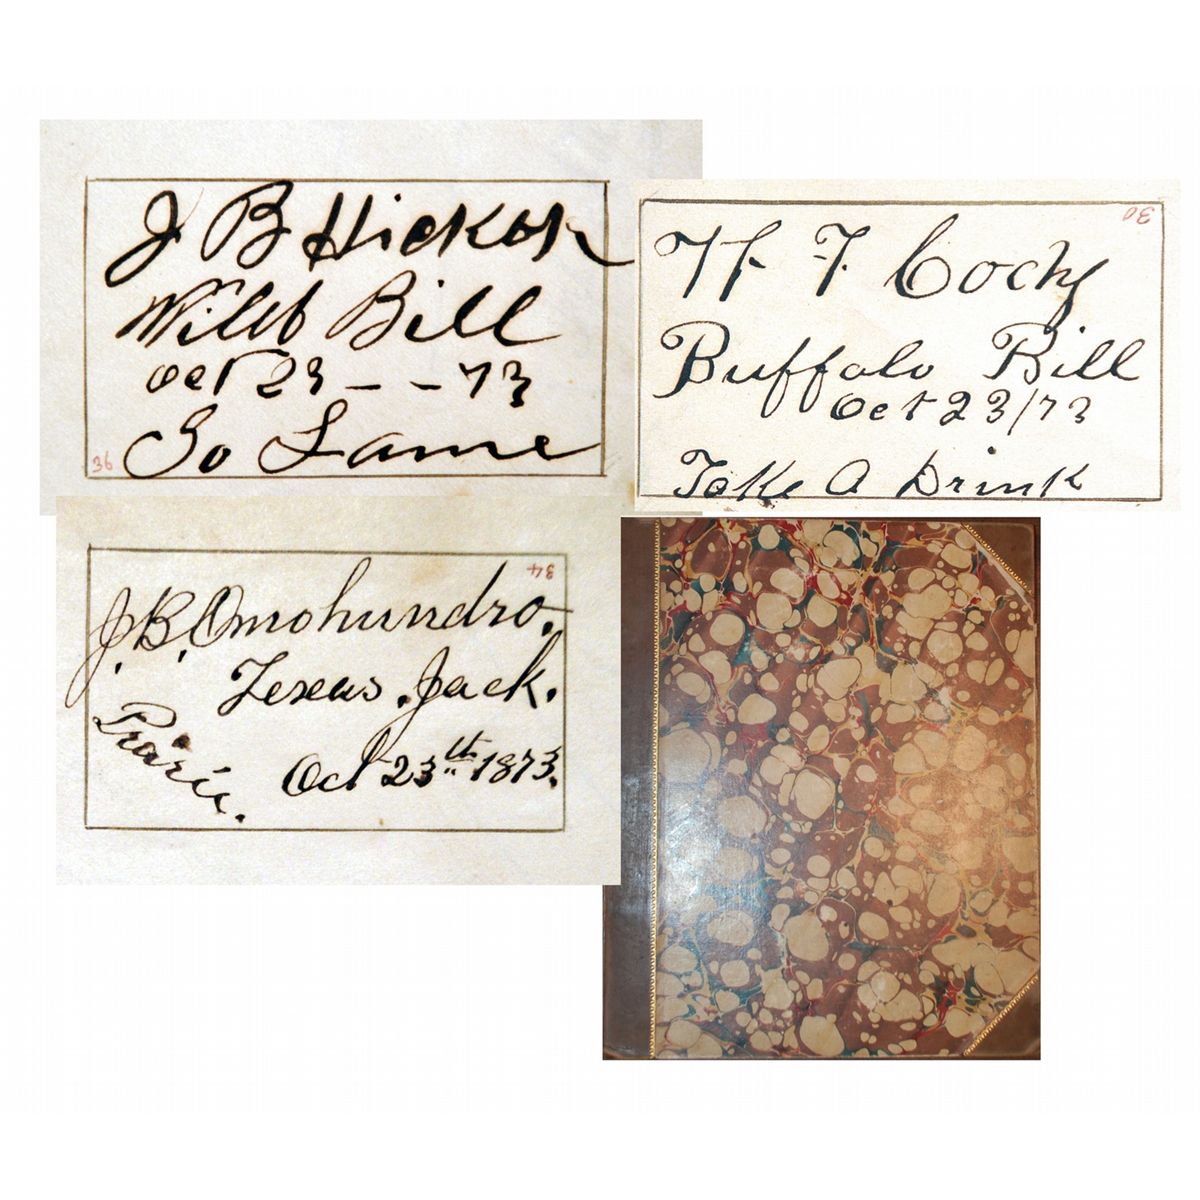 J B Hickok
Wild Bill
Oct 23 - - 73
So Lame
36
30
W F Cody
Buffalo Bill
Oct 23/73
Take A Drink
34
J. B. Omohundro.
Texas. Jack.
Prarie.
Oct 23th 1873.